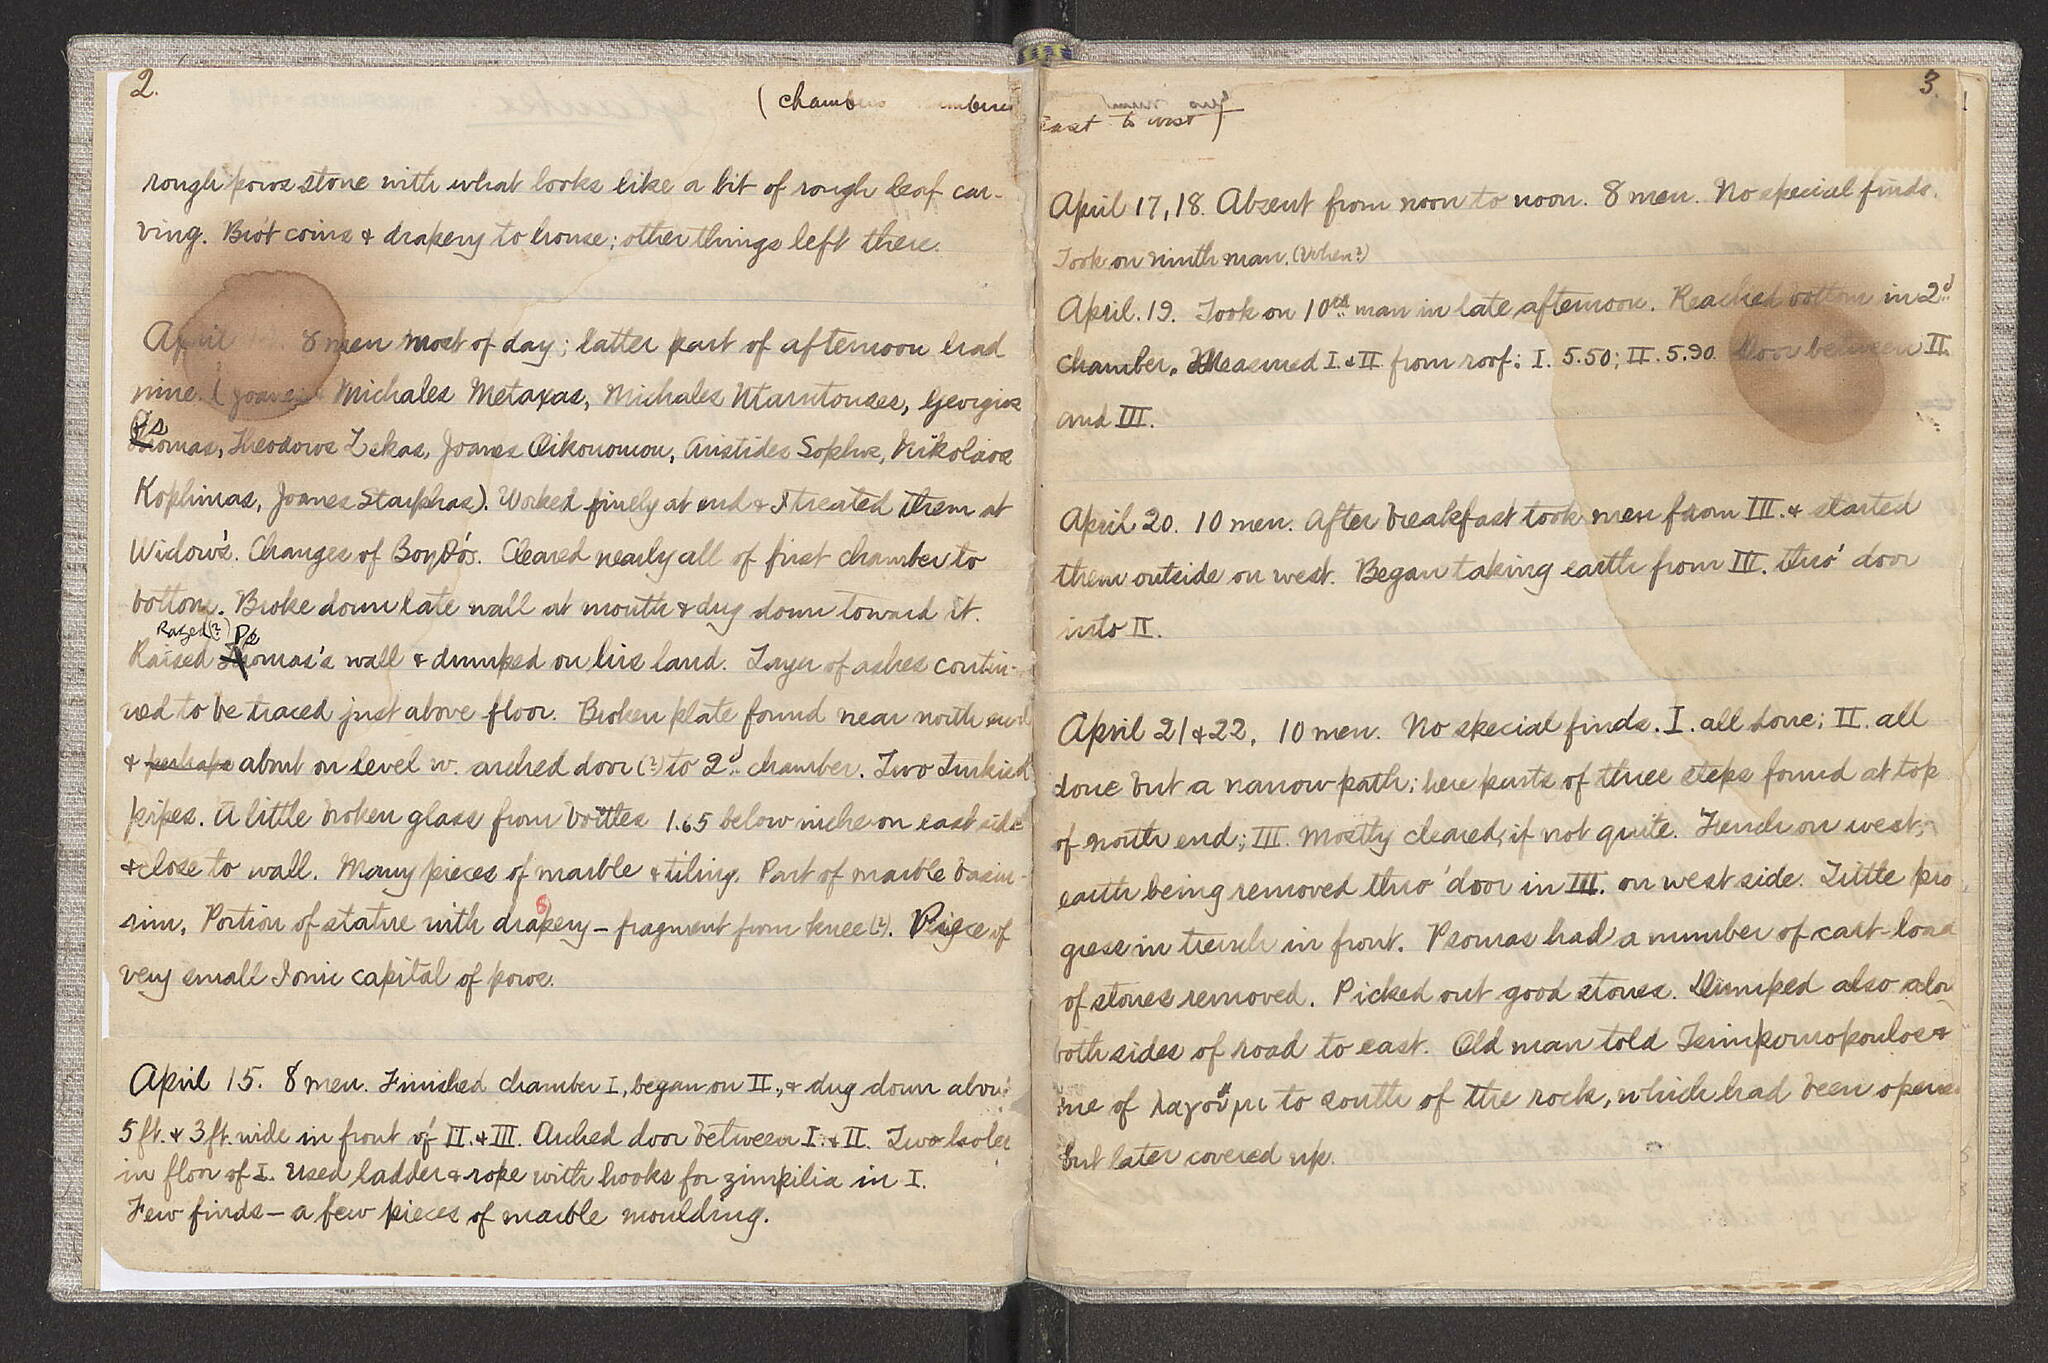 2.
(chambers
rough poros stone with what looks like a bit of rough leaf car-
ving. Bro't coins & drapery to house; other things left there.
April 8 men most of day; latter part of afternoon had
nine. ( Michales Metaxas, Michales Ntarntouses, Georgios
Psomas, Theodoros Lekas, Joanes Oikonomou, Aristides Sophos, Nikolaos
Kophinas, Joanes Starphas). Worked finely at end & I treated them at
Widow's. Changes of Βοηθό's. Cleared nearly all of first chamber to
bottom. Broke down late wall at mouth & dug down toward it.
Razed(?) Ps
Raised Thomas's wall & dumped on his land. Layer of ashes contin-
ued to be traced just above floor. Broken plate found near north end
& perhaps about on level w. arched door(?) to 2d chamber. Two Turkish
pipes. A little broken glass from bottles 1.65 below niche on east side
& close to wall. Many pieces of marble & tiling. Part of marble basin-
rim. Portion of statue with drapery – fragment from knee(?). Piece of
8
very small Ionic capital of poros.
April 15. 8 men. Finished chamber I, began on II., & dug down about
5 ft. & 3 ft. wide in front of II. & III. Arched door between I. & II. Two holes
in floor of I. Used ladder & rope with hooks for zimpilia in I.
Few finds – a few pieces of marble moulding.
3.
east to west)
April 17, 18. Absent from noon to noon. 8 men. No special finds.
Took on ninth man. (When?)
April. 19. Took on 10th man in late afternoon. Reached bottom in 2d
chamber. Measured I. & II from roof: I. 5.50; II. 5.90. Door between II.
and III.
April 20. 10 men. After breakfast took men from III. & started
them outside on west. Began taking earth from III. thro' door
into II.
April 21 & 22. 10 men. No special finds. I. all done; II. all
done but a narrow path; here parts of three steps found at top
of north end; III. mostly cleared, if not quite. Trench on west;
earth being removed thro' door in III. on west side. Little pro
gress in trench in front. Psomas had a number of cart-load
of stones removed. Picked out good stones. Dumped also alon
both sides of road to east. Old man told Tsimpouropoulos &
me of λαγούμι to south of the rock, which had been opene
but later covered up.